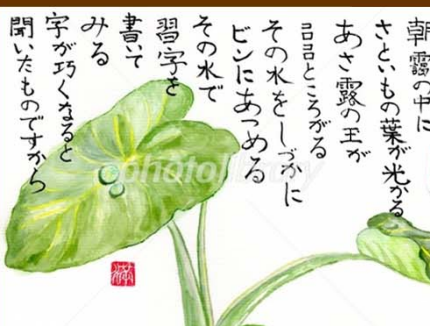 朝靄の中に
さといもの葉が光かる
あさ露の王が
呂呂ところがる
その水をしづかに
ビンにあつめる
その水で
習字を
書いて
みる
字が巧くなると
聞いたものですから
photolibrary